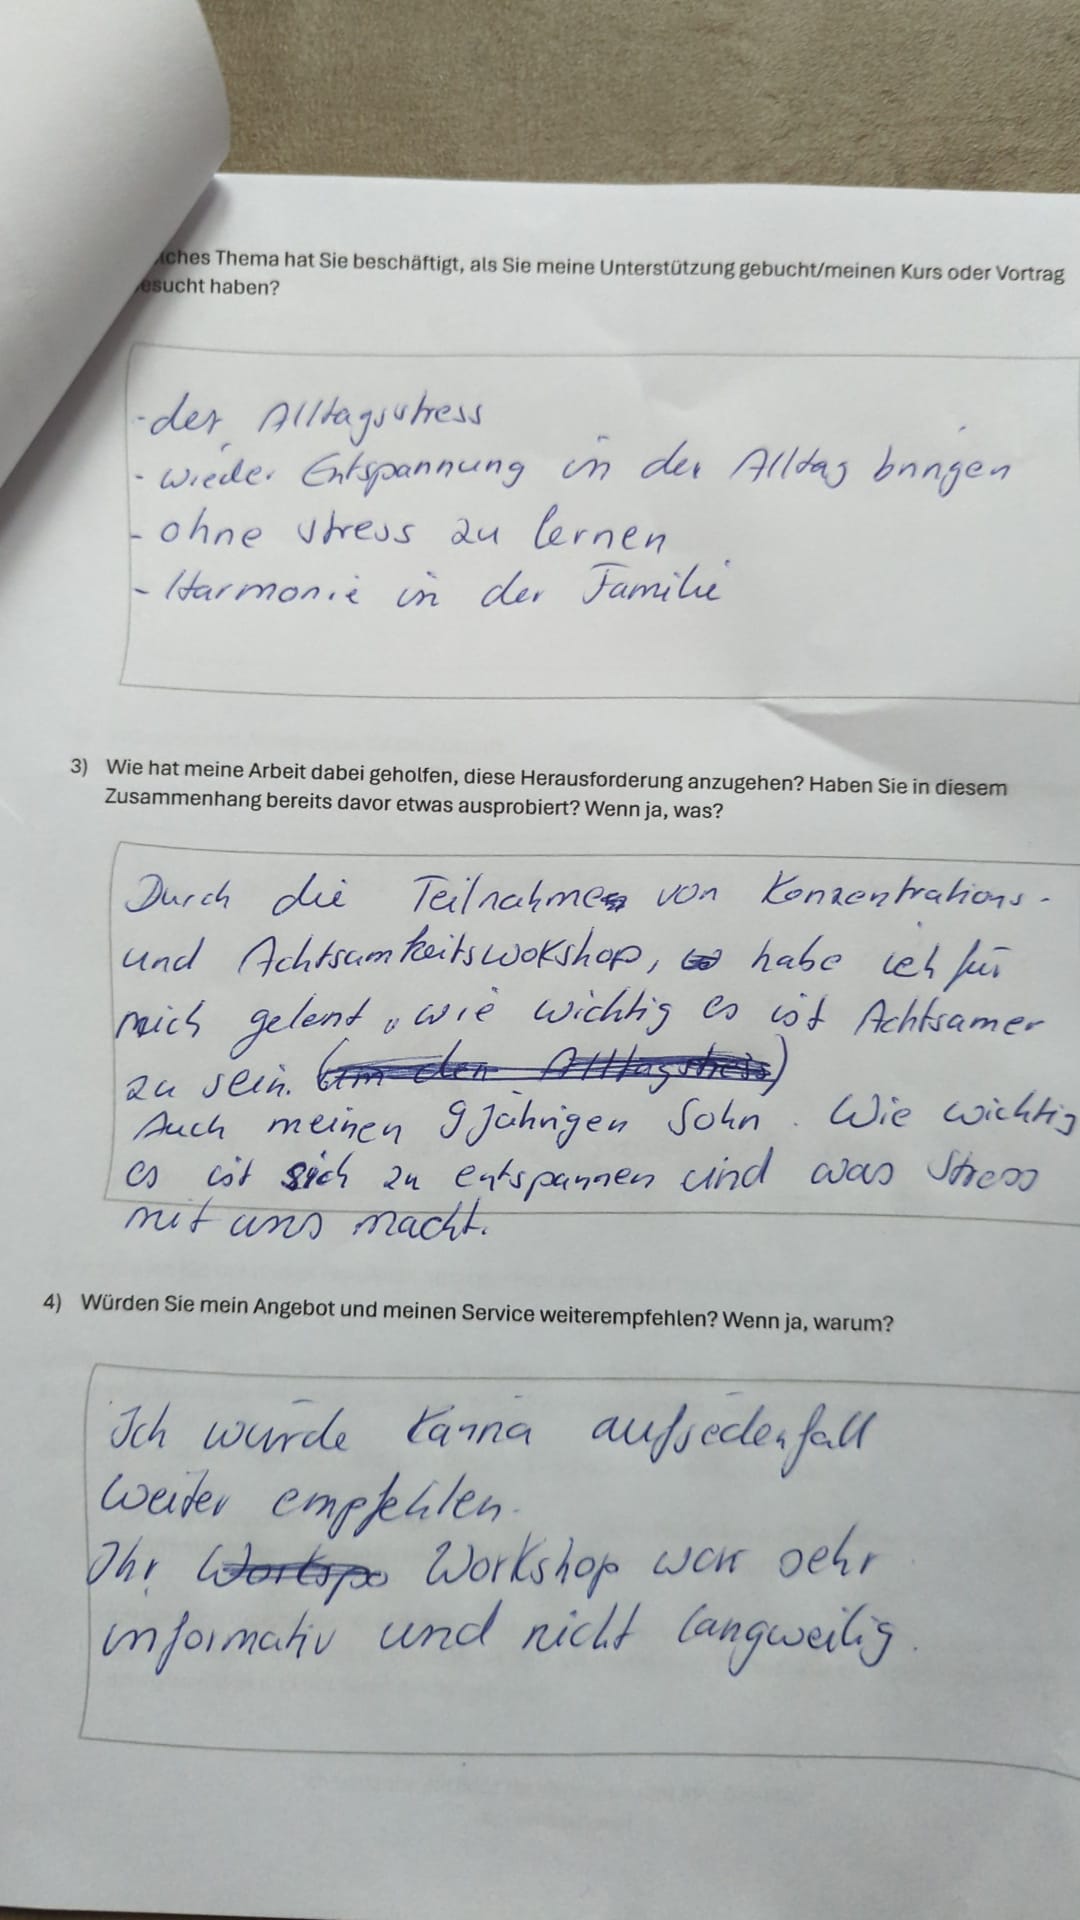 ches Thema hat Sie beschäftigt, als Sie meine Unterstützung gebucht/meinen Kurs oder Vortrag
esucht haben?
- der Alltagsstress
- wieder Entspannung in den Alltag bringen
- ohne stress zu lernen
- Harmonie in der Familie
3) Wie hat meine Arbeit dabei geholfen, diese Herausforderung anzugehen? Haben Sie in diesem
Zusammenhang bereits davor etwas ausprobiert? Wenn ja, was?
Durch die Teilnahme von Konzentrations-
und Achtsamkeitswokshop, habe ich für
mich gelent, wie wichtig es ist Achtsamer
zu sein. (um den Alltagstress)
Auch meinen 9 jährigen Sohn. Wie wichtig
es ist sich zu entspannen und was Stress
mit uns macht.
4) Würden Sie mein Angebot und meinen Service weiterempfehlen? Wenn ja, warum?
Ich würde aufjedenfall
weiter empfehlen.
Ihr Workspo Workshop war sehr
informativ und nicht langweilig.